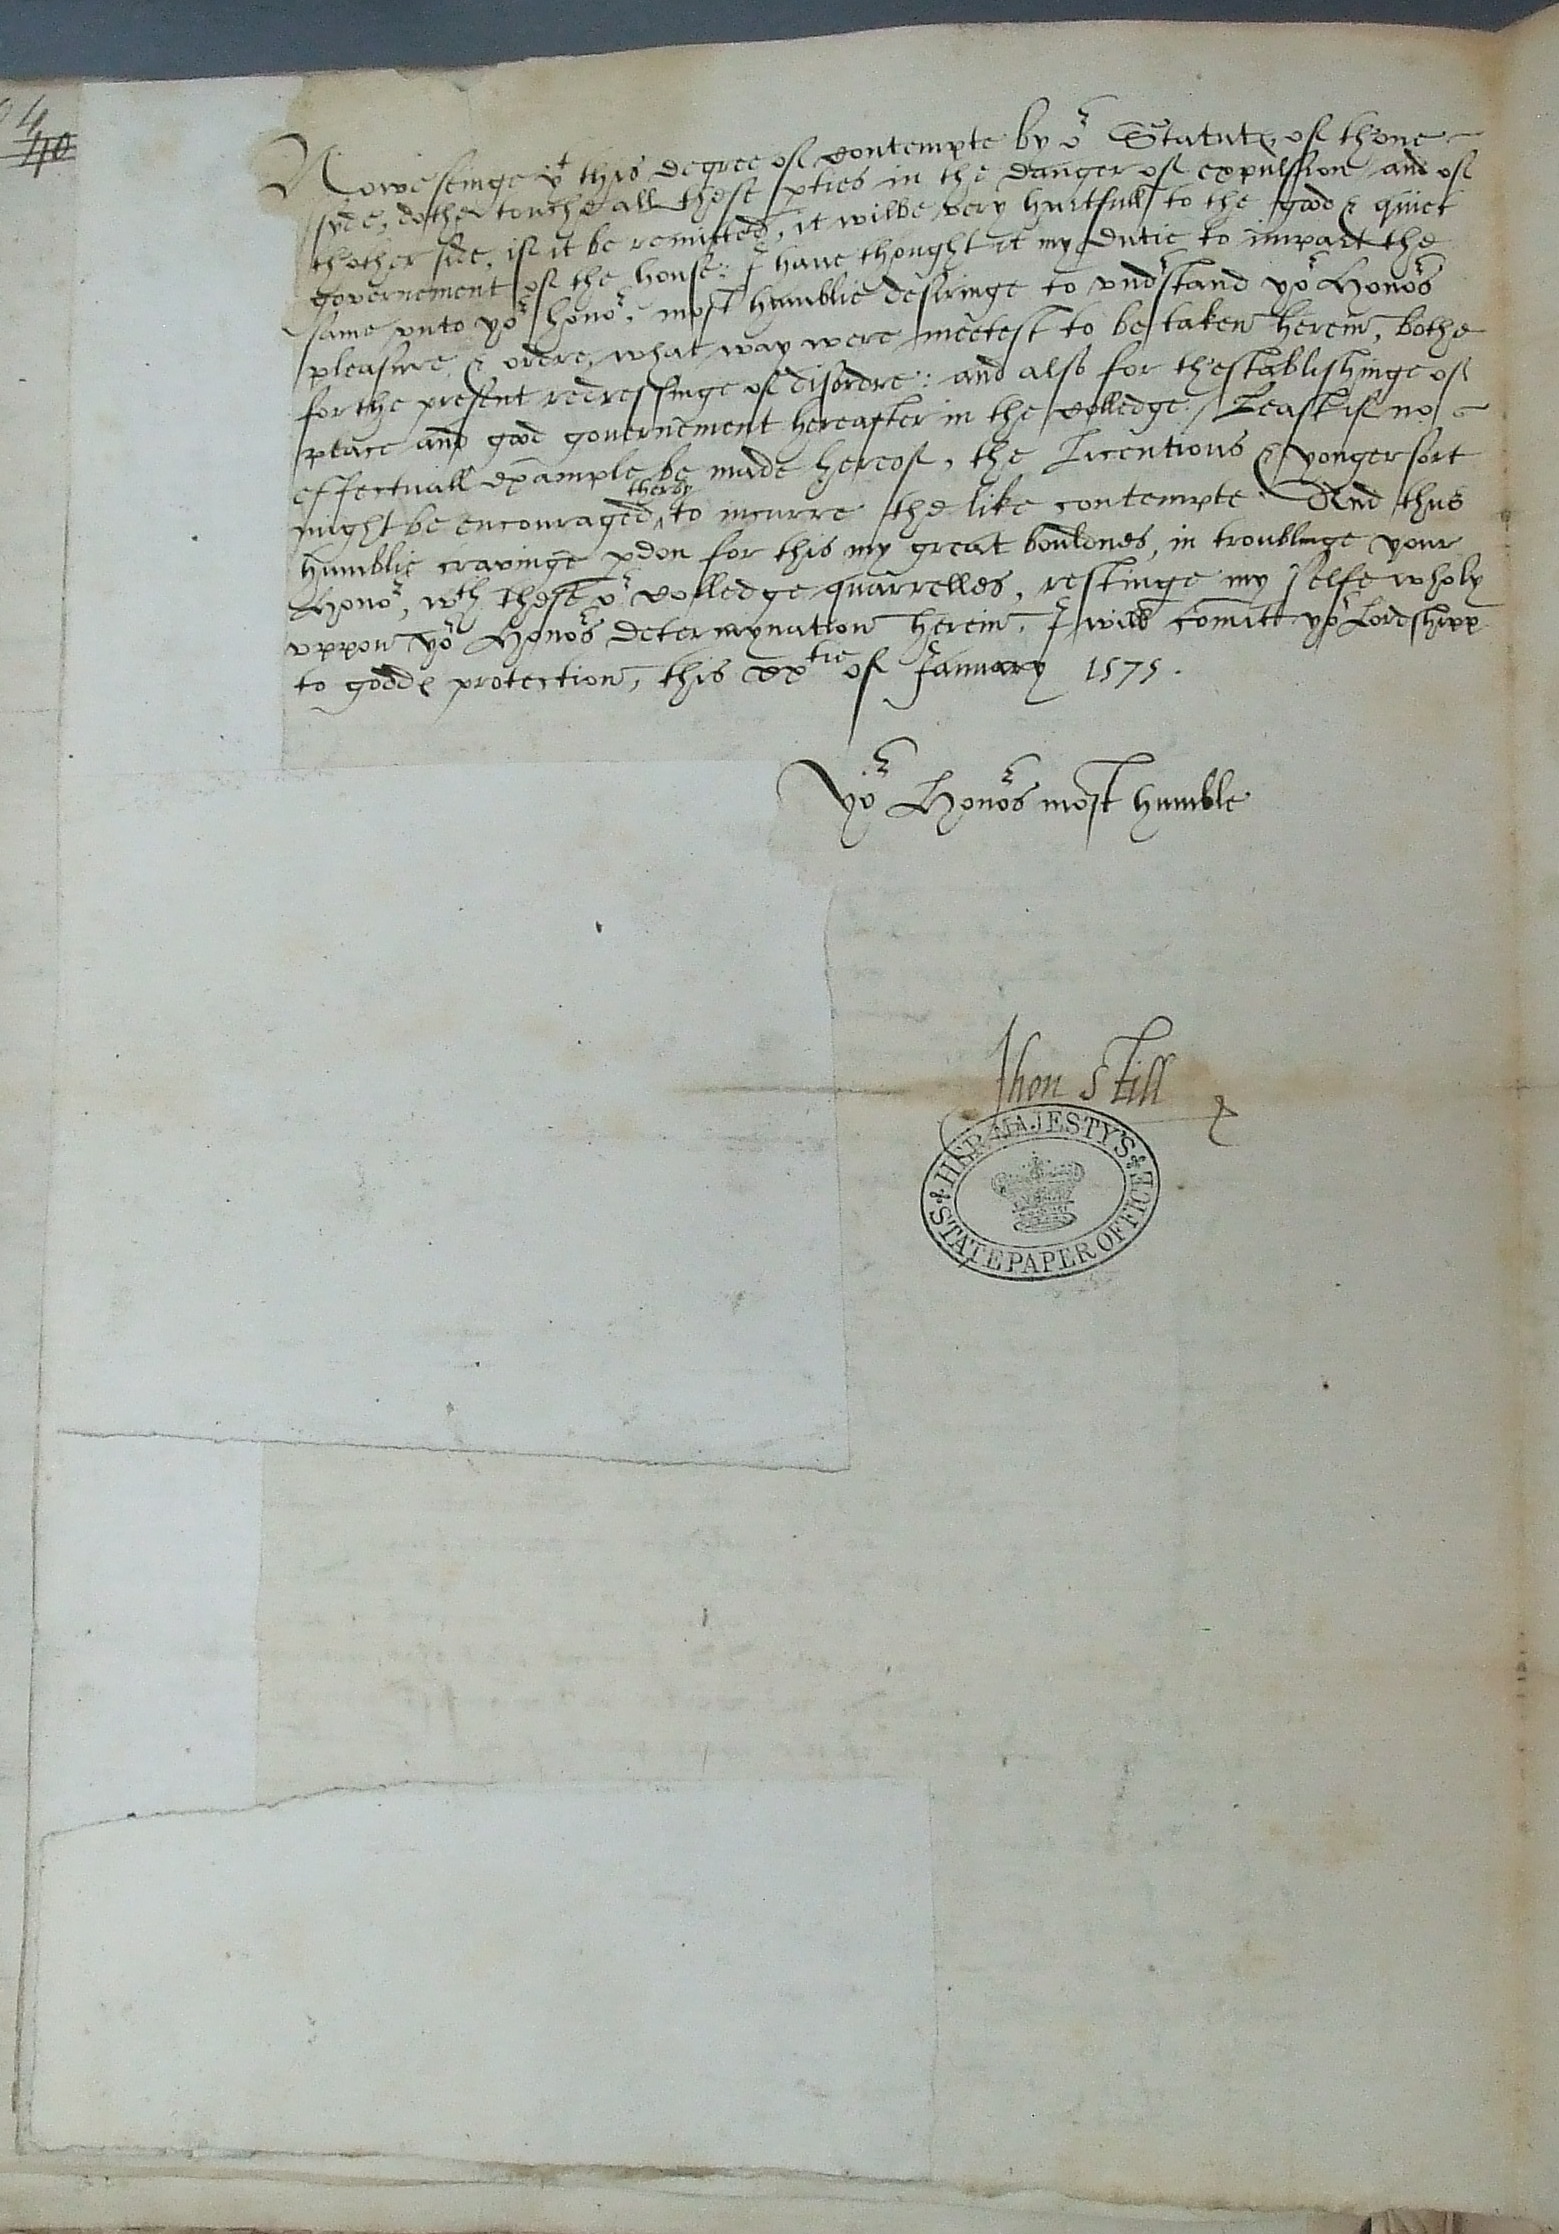 4
40
Nowe seinge yt this degree of contempte by or Statutes of thone
syde, dothe touche all these pties in the danger of expulsion and of
thother side, if it be remitted, it wilbe very hurtfull to the good & quiet
governement of the house: I have thought it my dutie to impart the
same unto yor honor, most humblie desiringe to undrstand yor Honors
pleasure, & ordre, what way were meetest to be taken herein, bothe
for the present redressinge of disordre: and also for thestablishinge of
peace and good governement hereafter in the colledge. Least if no
effectuall example be made hereof, the Licentious & yonger sort
might be encouraged therby to incurre the like contempte. And thus
humblie cravinge pdon for this my great bouldnes, in troublinge your
Honor, wth these or colledge quarrelles, restinge my selfe wholy
uppon yor Honors determynation herein, I will comitt yor Lordshipp
to godds protection, this xxtie of January 1575.
Yor Honors most humble
Jhon Still
HER MAJESTY'S
STATE PAPER OFFICE